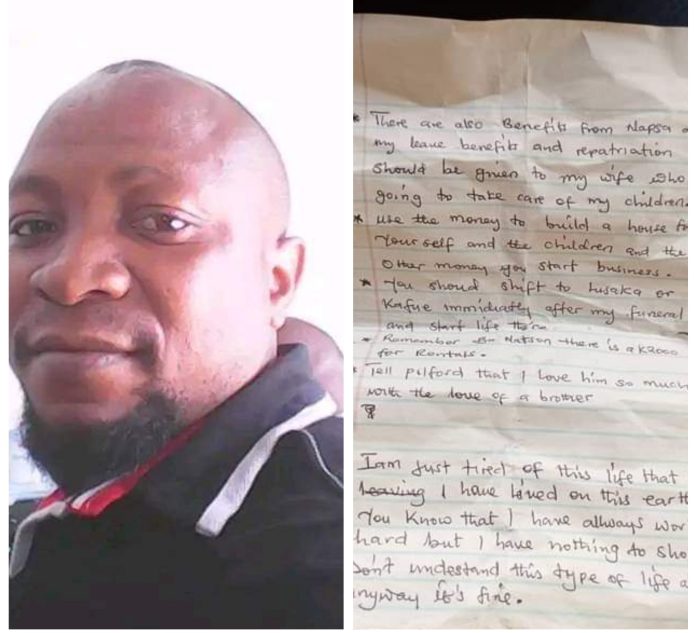 * There are also Benefits from Napsa
my leave benefits and repatriation
should be given to my wife who
going to take care of my children.
* use the money to build a house
Yourself and the children and the
Other money you start business.
* You shoud shift to Lusaka or
Kafue immidiatly after my funeral
and start life there
* Remember Ba Natson there is a K2000
for Rentals.
* Tell pilford that I love him so much
with the love of a brother
I am just tired of this life that
leaving I have lived on this earth
You know that I have allways wor
hard but I have nothing to sho
Don't undestand this type of life a
anyway it's fine.